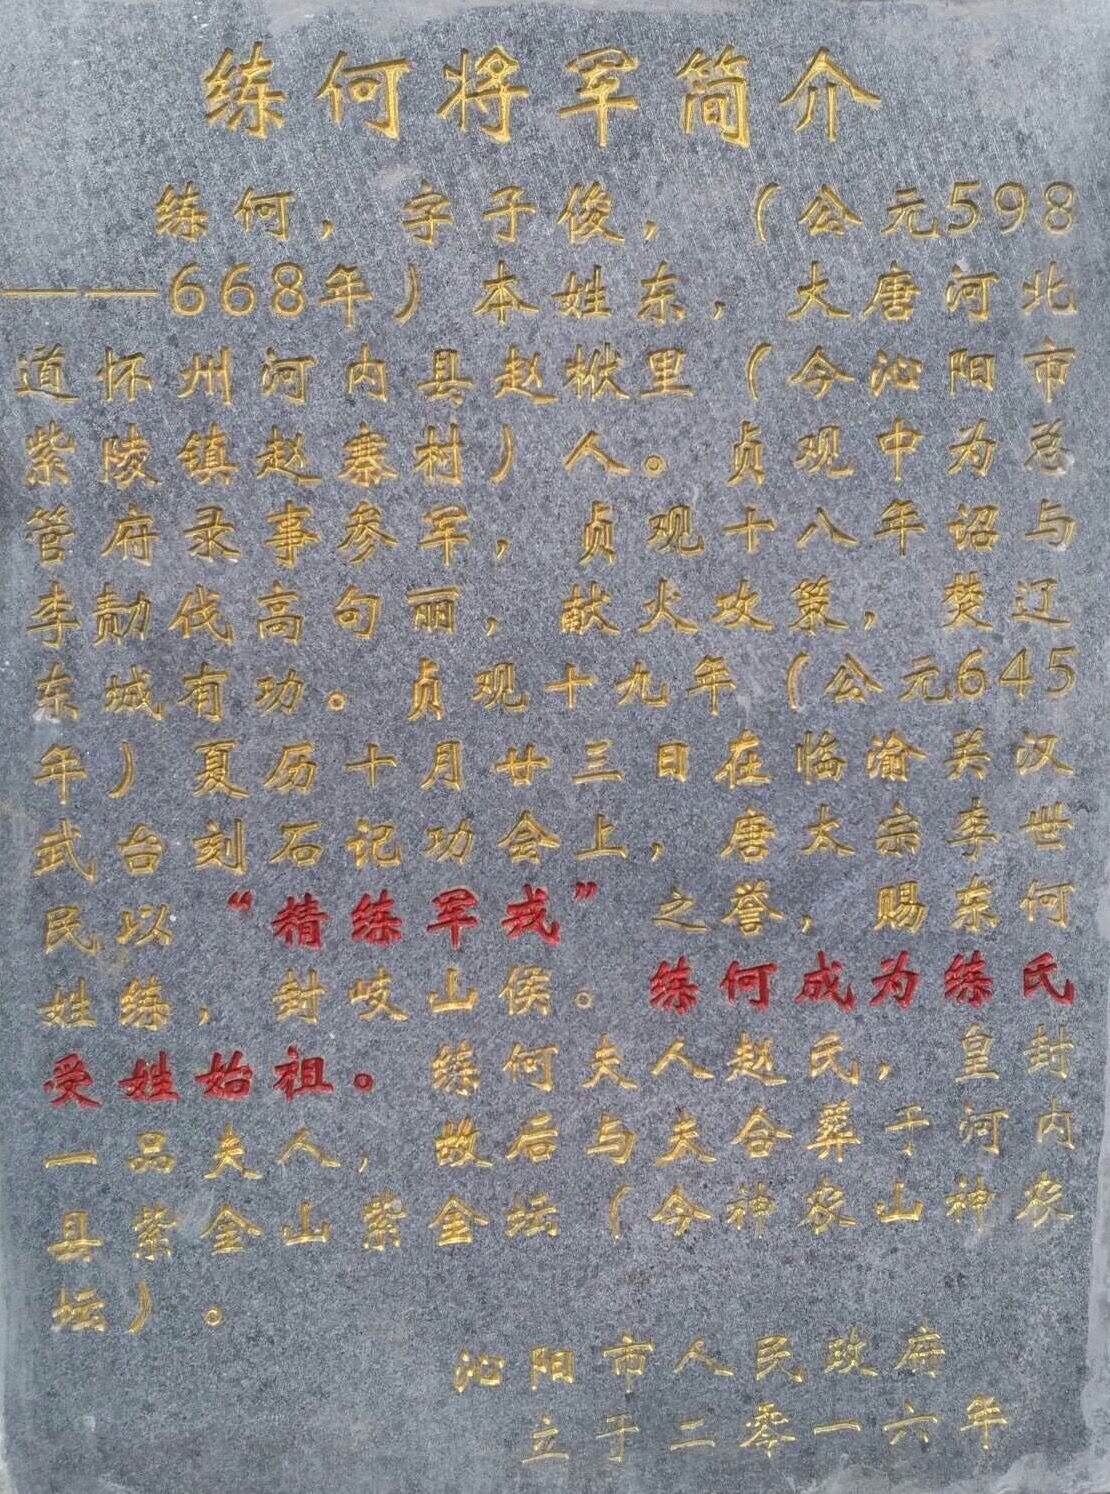 练何将军简介
练何，字子俊，（公元598
——668年）本姓东，大唐河北
道怀州河内县赵楸里（今沁阳市
紫陵镇赵寨村）人。贞观中为总
管府录事参军，贞观十八年诏与
李勣伐高句丽，献火攻策，焚辽
东城有功。贞观十九年（公元645
年）夏历十月廿三日在临渝关汉
武台刻石记功会上，唐太宗李世
民以“精练军戎”之誉，赐东何
姓练，封岐山侯。练何成为练氏
受姓始祖。练何夫人赵氏，皇封
一品夫人，故后与夫合葬于河内
县紫金山紫金坛（今神农山神农
坛）。
沁阳市人民政府
立于二零一六年